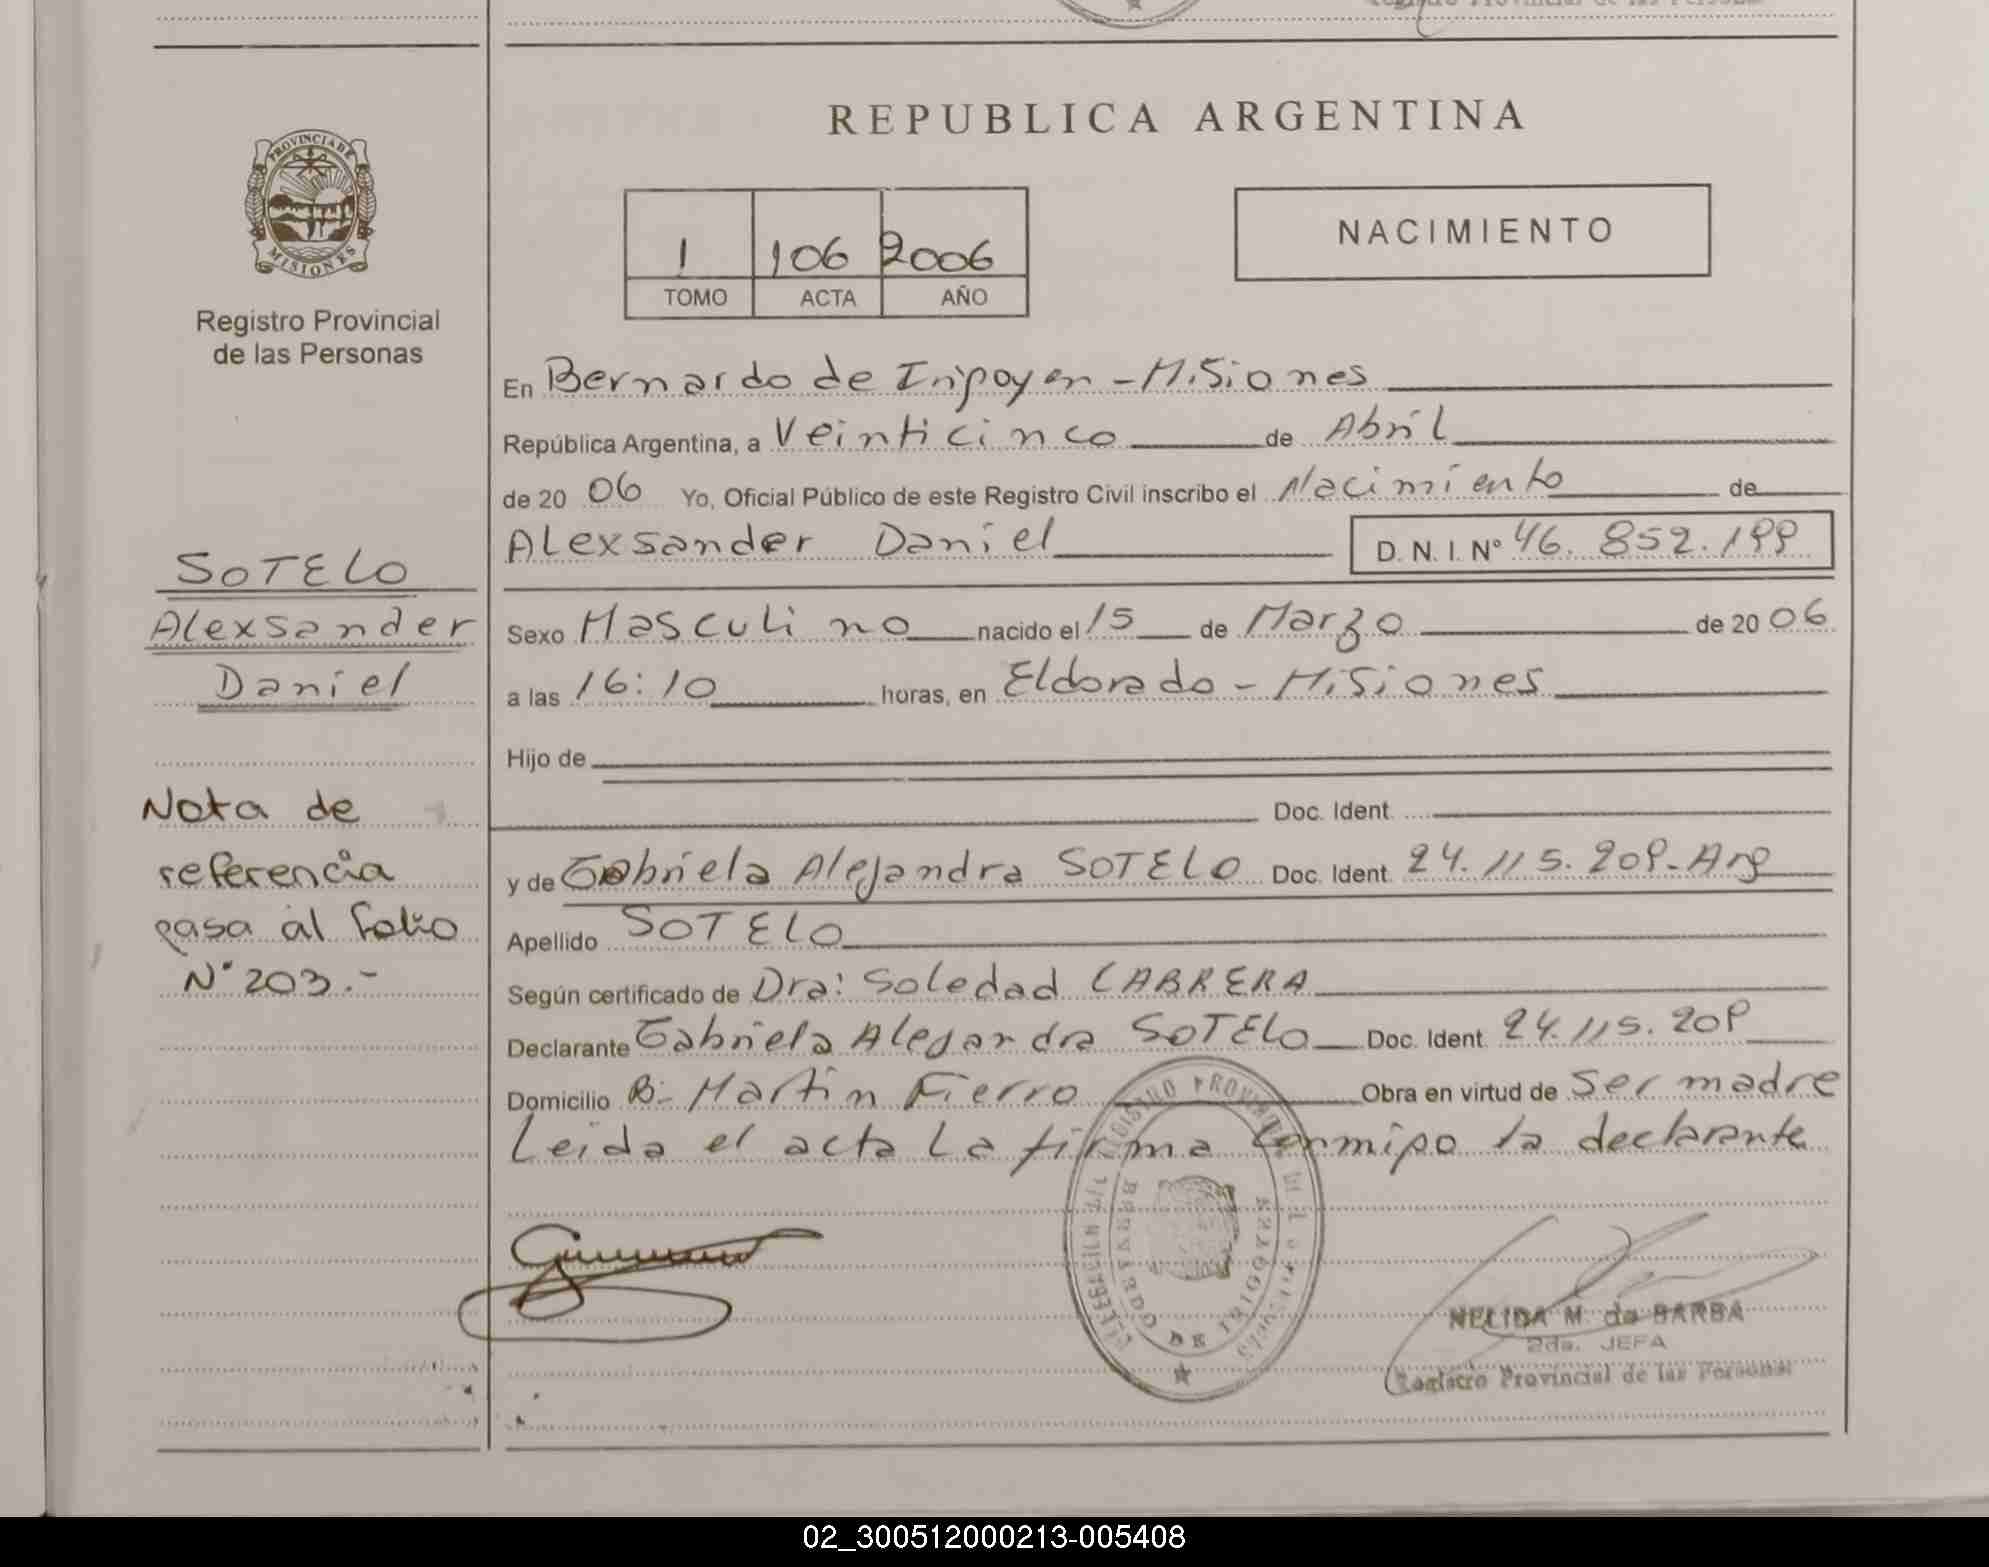 REPUBLICA ARGENTINA
PROVINCIA DE
MISIONES
Registro Provincial
de las Personas
1 106 2006
TOMO ACTA AÑO
NACIMIENTO
En Bernardo de Iripoyen - Misiones
República Argentina, a Veinticinco de Abril
de 20 06 Yo, Oficial Público de este Registro Civil inscribo el Nacimiento de
Alexsander Daniel D. N. I. Nº 46. 852. 199
SOTELO
Alexsander
Daniel
Sexo Masculino nacido el 15 de Marzo de 20 06
a las 16:10 horas, en Eldorado - Misiones
Hijo de
Doc. Ident.
Nota de
referencia
pasa al folio
N° 203.-
y de Gabriela Alejandra SOTELO Doc. Ident. 24. 115. 209 - Arg
Apellido SOTELO
Según certificado de Dra: Soledad CABRERA
Declarante Gabriela Alejandra SOTELO Doc. Ident. 24. 115. 209
Domicilio B: Martin Fierro Obra en virtud de Ser madre
Leida el acta La firma conmipo la declarante
REGISTRO PROVINCIAL DE LAS
BERNARDO DE IRIGOYEN
NELIDA M. de BARBA
2da. JEFA
Registro Provincial de las Personas
02_300512000213-005408